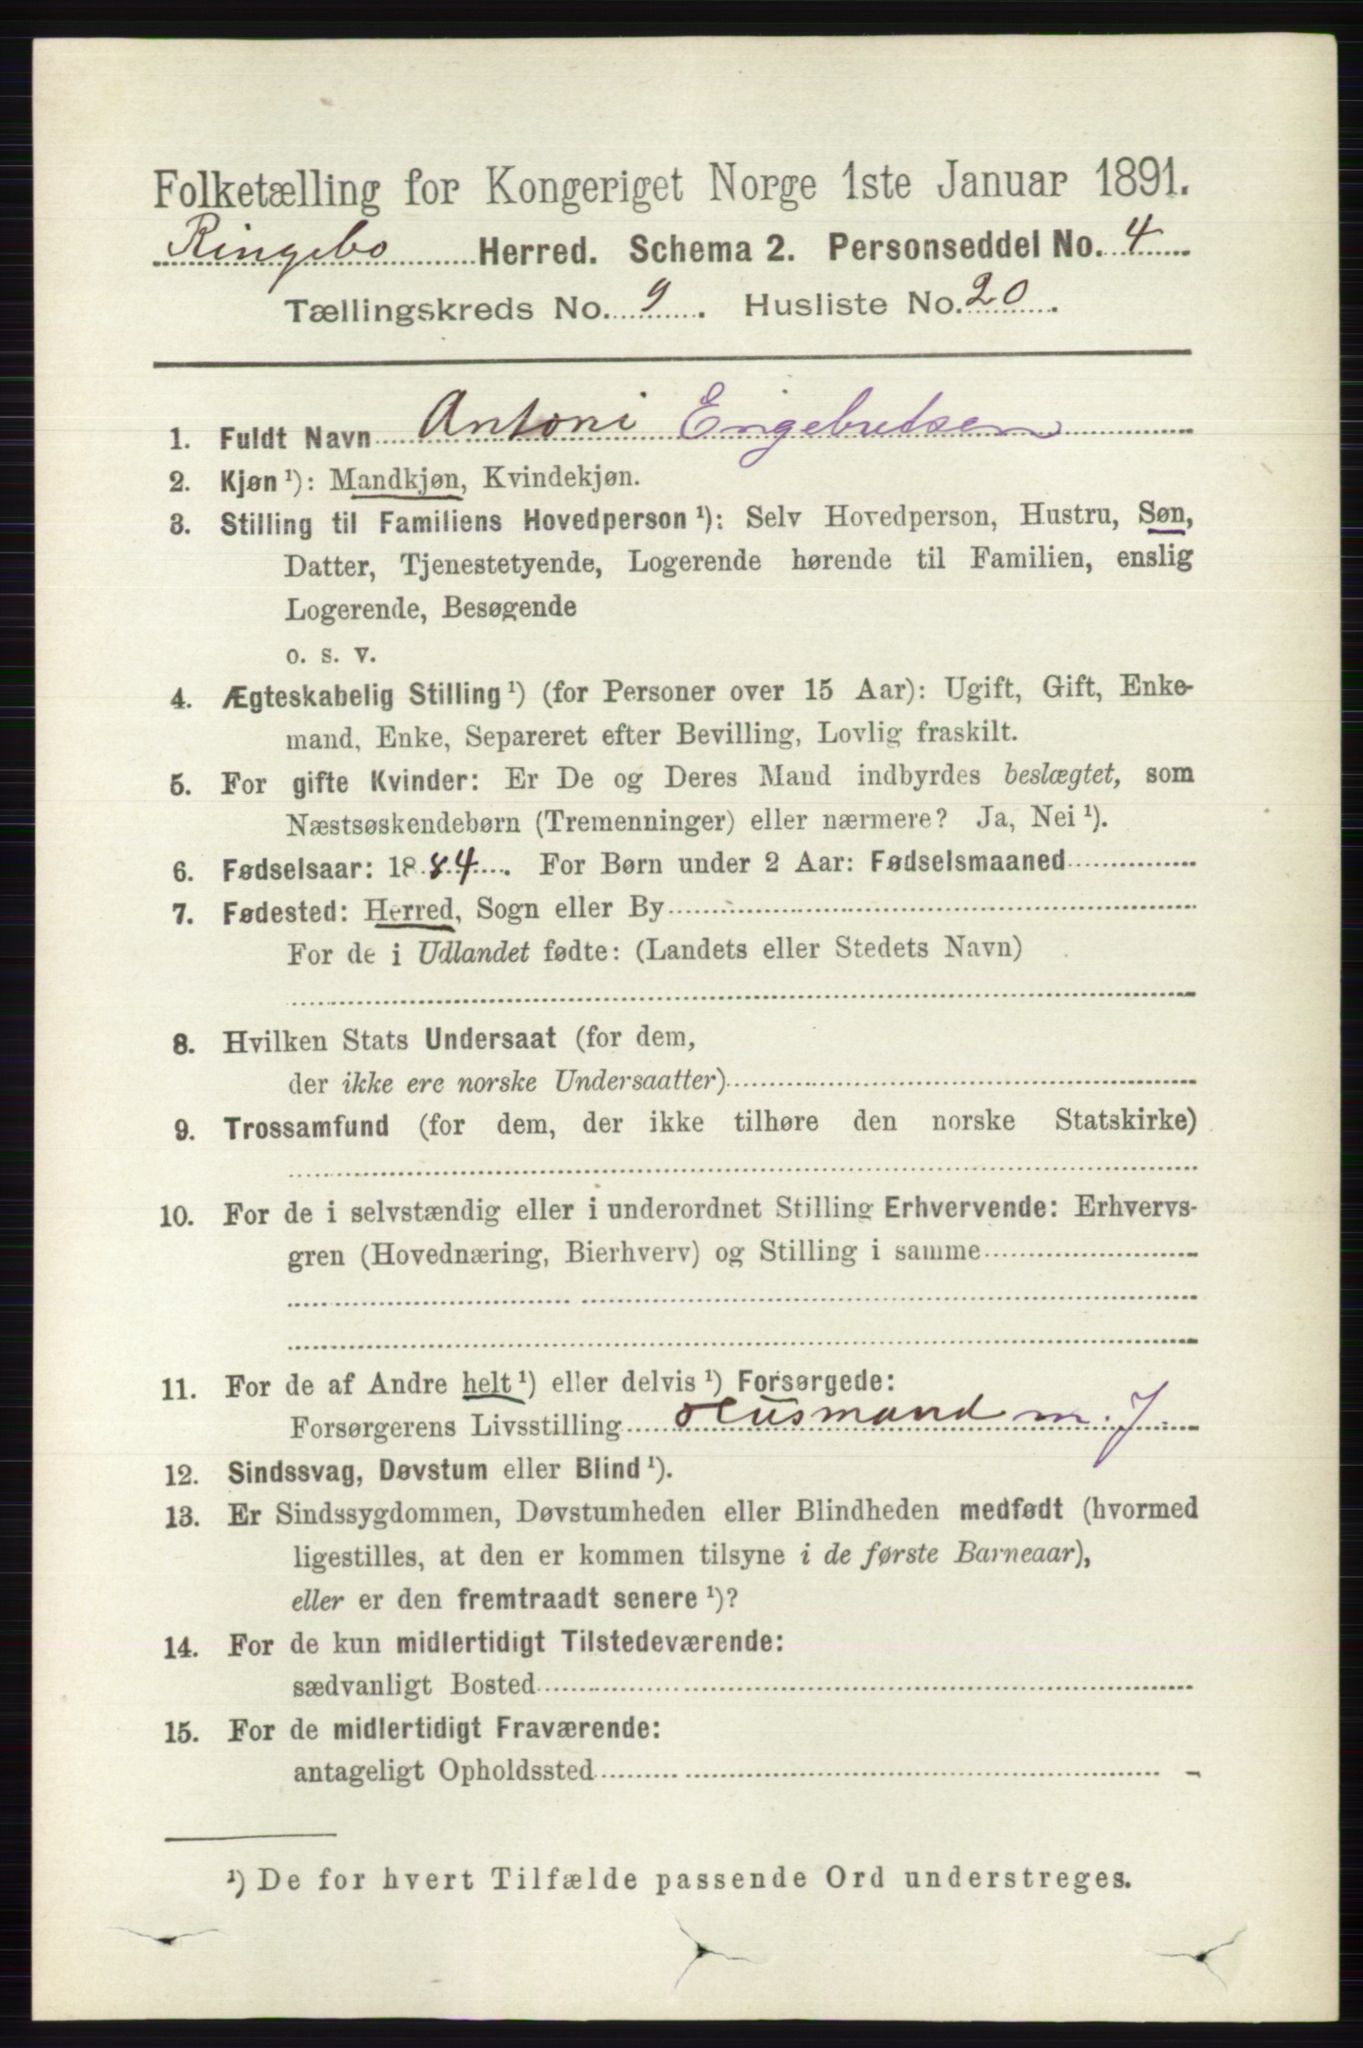 Folketælling for Kongeriget Norge 1ste Januar 1891.
Ringebo Herred. Schema 2. Personseddel No. 4
Tællingskreds No. 9. Husliste No. 20.
1. Fuldt Navn Antoni Engebretsen
2. Kjøn ¹): Mandkjøn, Kvindekjøn.
3. Stilling til Familiens Hovedperson ¹): Selv Hovedperson, Hustru, Søn,
Datter, Tjenestetyende, Logerende hørende til Familien, enslig
Logerende, Besøgende
o. s. v.
4. Ægteskabelig Stilling ¹) (for Personer over 15 Aar): Ugift, Gift, Enke-
mand, Enke, Separeret efter Bevilling, Lovlig fraskilt.
5. For gifte Kvinder: Er De og Deres Mand indbyrdes beslægtet, som
Næstsøskendebørn (Tremenninger) eller nærmere? Ja, Nei ¹).
6. Fødselsaar: 1884. For Børn under 2 Aar: Fødselsmaaned
7. Fødested: Herred, Sogn eller By
For de i Udlandet fødte: (Landets eller Stedets Navn)
8. Hvilken Stats Undersaat (for dem,
der ikke ere norske Undersaatter)
9. Trossamfund (for dem, der ikke tilhøre den norske Statskirke)
10. For de i selvstændig eller i underordnet Stilling Erhvervende: Erhvervs-
gren (Hovednæring, Bierhverv) og Stilling i samme
11. For de af Andre helt ¹) eller delvis ¹) Forsørgede:
Forsørgerens Livsstilling Husmand m. J.
12. Sindssvag, Døvstum eller Blind ¹).
13. Er Sindssygdommen, Døvstumheden eller Blindheden medfødt (hvormed
ligestilles, at den er kommen tilsyne i de første Barneaar),
eller er den fremtraadt senere ¹)?
14. For de kun midlertidigt Tilstedeværende:
sædvanligt Bosted
15. For de midlertidigt Fraværende:
antageligt Opholdssted
¹) De for hvert Tilfælde passende Ord understreges.